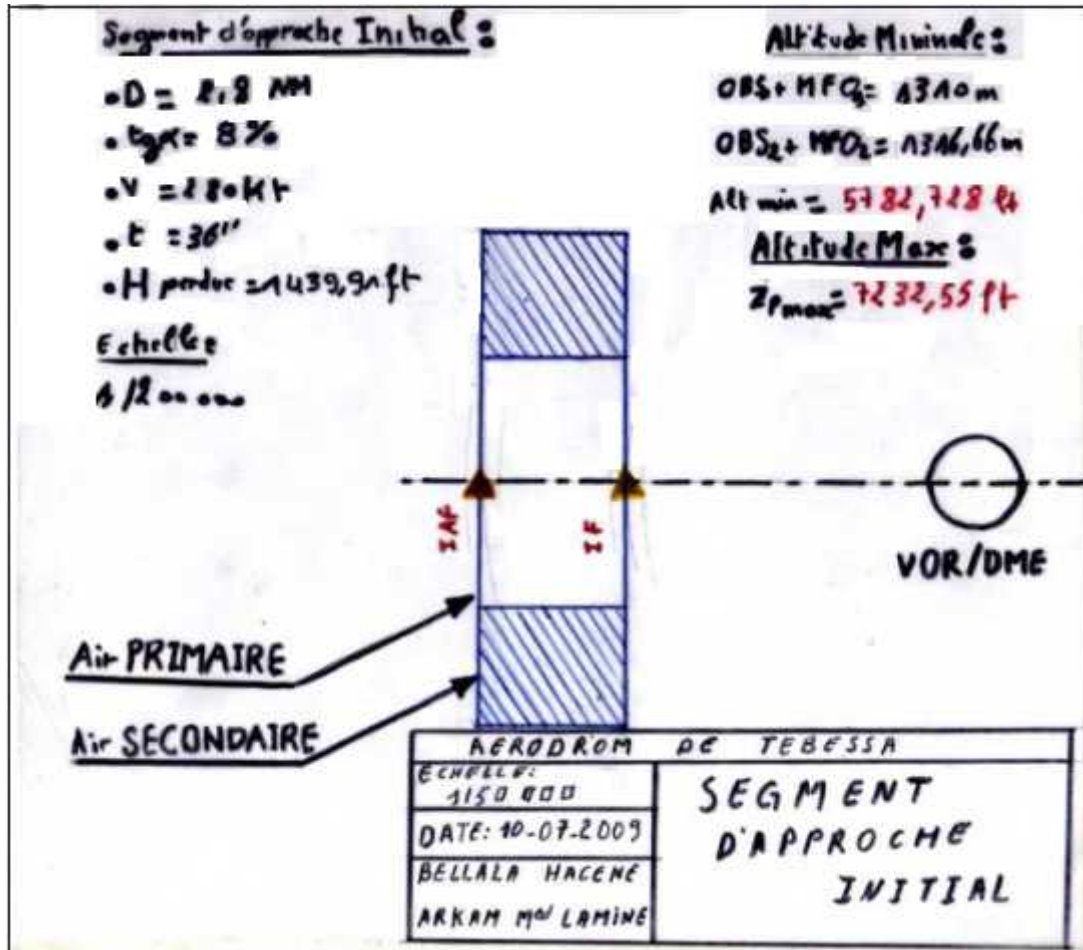 Segment d'approche Initial :
• D = 2,8 NM
• tgα = 8%
• V = 280 Kt
• t = 36''
• H perdue = 1439,91 ft
Echelle :
1/200 000
Altitude Minimale :
OBS+ MFO = 1310 m
OBS2+ MFO2 = 1316,66 m
Alt min = 5782,728 ft
Altitude Max :
ZPmax = 7232,55 ft
IAF
IF
VOR/DME
Air PRIMAIRE
Air SECONDAIRE
AERODROM DE TEBESSA
ECHELLE:
1/50 000
DATE: 10-07-2009
BELLALA HACENE
ARKAM Med LAMINE
SEGMENT
D'APPROCHE
INITIAL